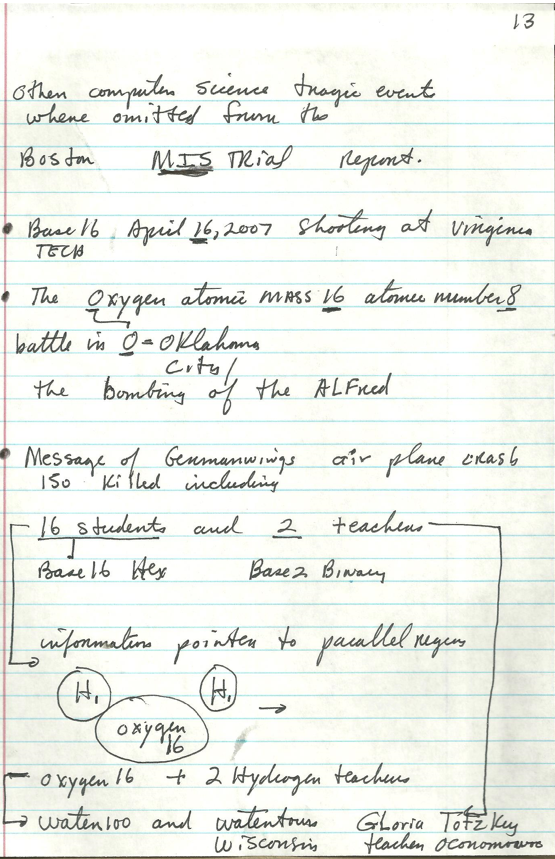 13
other computer science tragic events
where omitted from the
Boston MIS TRial Report.
• Base 16 April 16, 2007 shooting at Virginia
TECH
• The Oxygen atomic MASS 16 atomic number 8
battle in O = OKlahoma
City/
the Bombing of the ALFred
• Message of Germanwings air plane crash
150 killed including
16 students and 2 teachers
Base 16 Hex Base 2 Binary
information pointer to parallel
H1 H1
oxygen
16
oxygen 16 + 2 Hydrogen teachers
Water 100 and watertown GLoria Totzkey
Wisconsin teacher oconomowoc